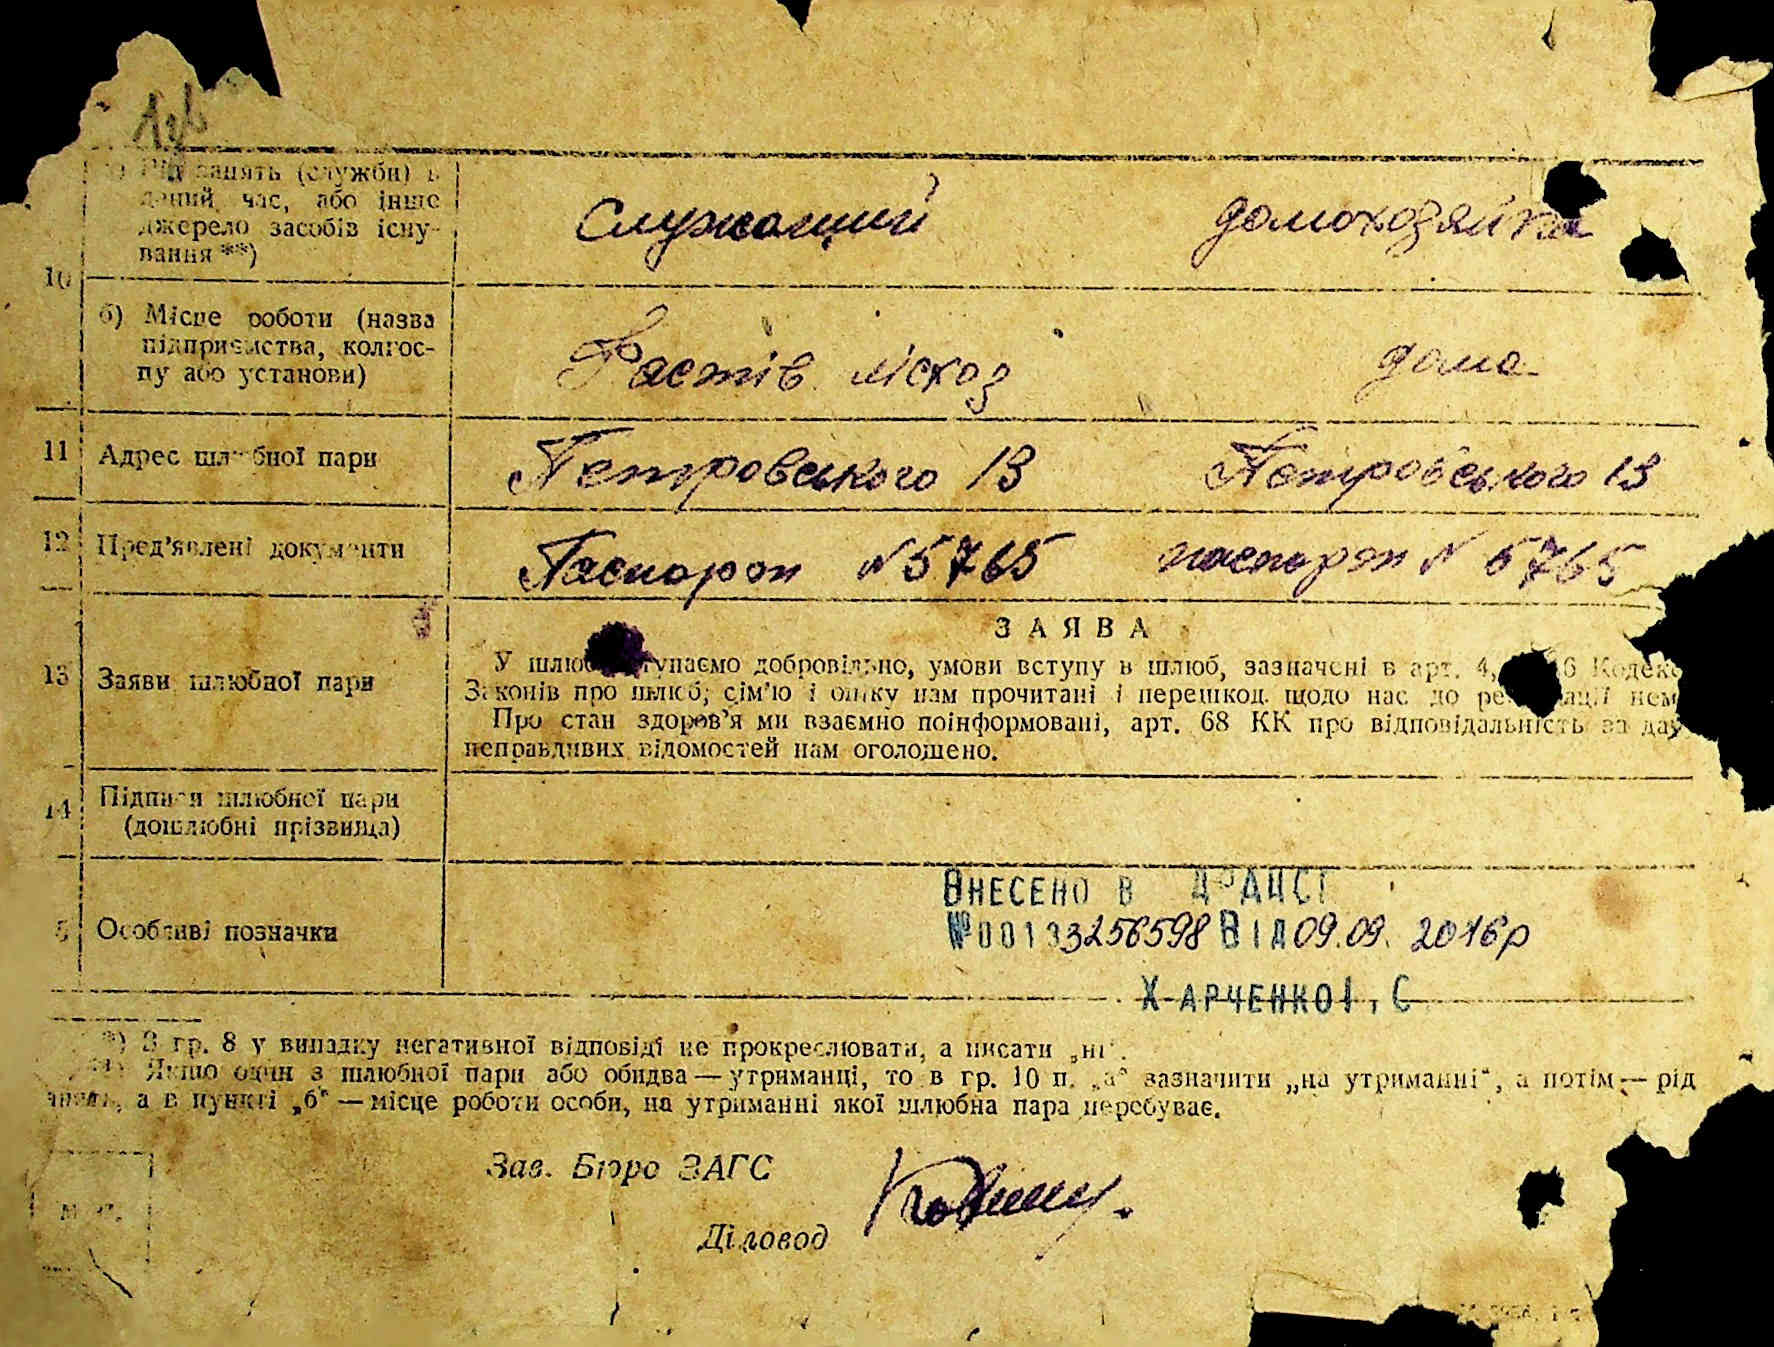 занять (служби) в
даний час, або інше
джерело засобів існу-
вання **)
Служащий домохозяйка
10
б) Місце роботи (назва
підприємства, колгос-
пу або установи)
Фастів лісхоз дома
11 Адрес шлюбної пари Петровського 13 Петровського 13
12 Пред'явлені документи Паспорт №5765 паспорт № 5765
ЗАЯВА
13 Заяви шлюбної пари
У шлюб вступаємо добровільно, умови вступу в шлюб, зазначені в арт. 4, 6 Кодекс
Законів про шлюб, сім'ю і опіку нам прочитані і перешкод щодо нас до реєстрації нем
Про стан здоров'я ми взаємно поінформовані, арт. 68 КК про відповідальність за дач
неправдивих відомостей нам оголошено.
14 Підписи шлюбної пари
(дошлюбні прізвища)
5 Особливі позначки
ВНЕСЕНО В ДРАЦСГ
№00133256598 ВІД 09.09.2016р
ХАРЧЕНКО І, С
*) З гр. 8 у випадку негативної відповіді не прокреслювати, а писати „ні".
**) Якщо один з шлюбної пари або обидва — утриманці, то в гр. 10 п. „а" зазначити „на утриманні", а потім — рід
занять, а в пункті „б" — місце роботи особи, на утриманні якої шлюбна пара перебуває.
Зав. Бюро ЗАГС
Діловод